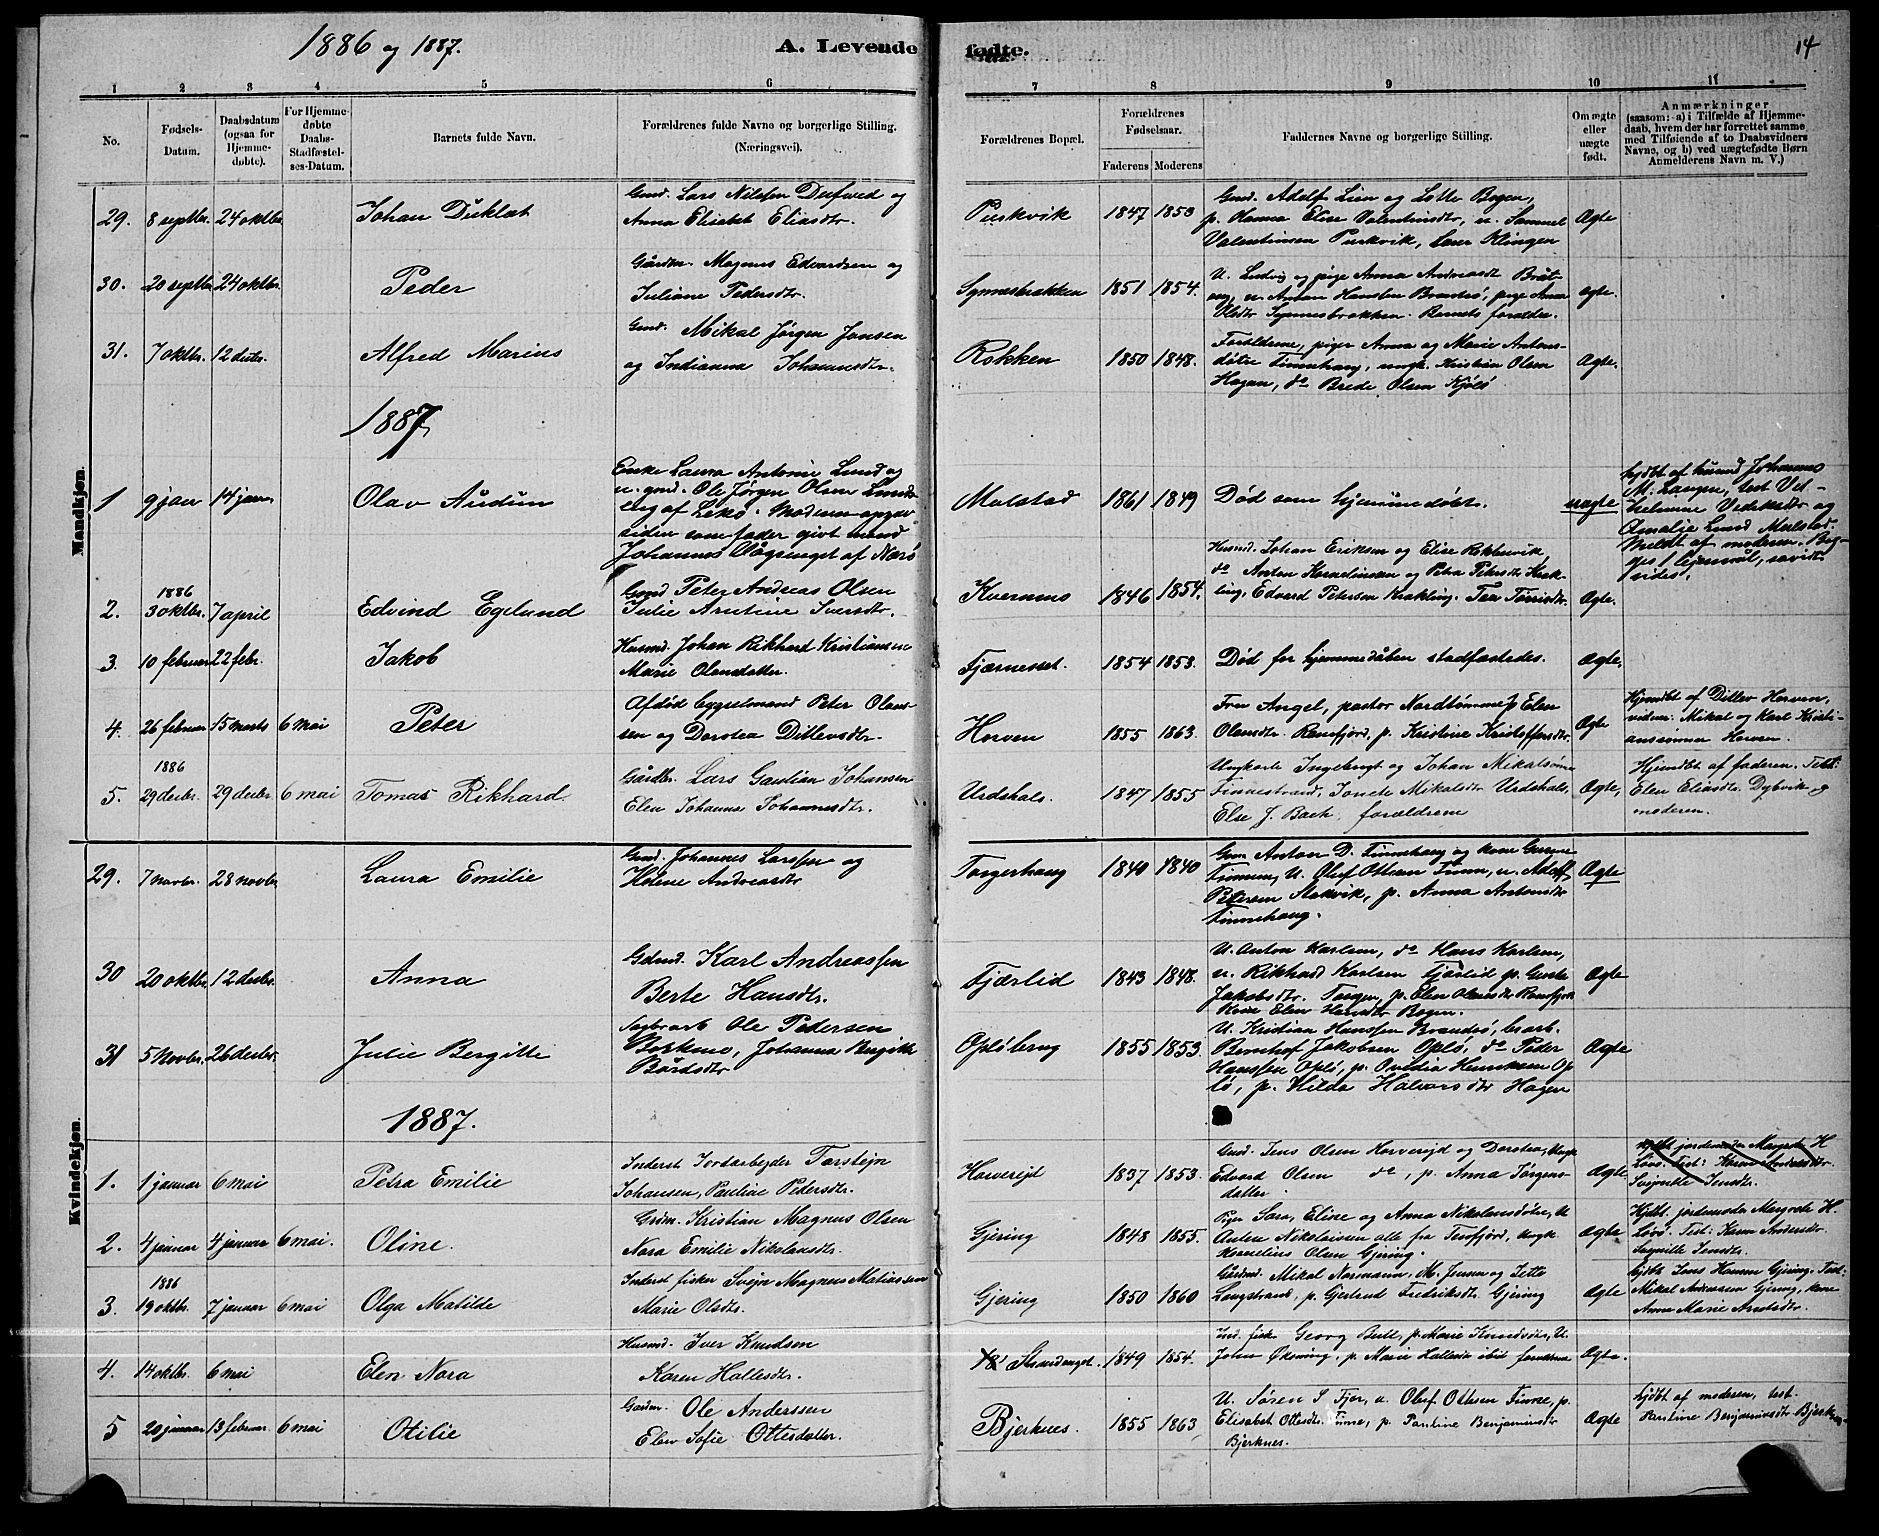 1886 og 1887.
A. Levende fødte.
14
1 2 3 4 5 6 7 8 9 10 11
No.
Fødsels-Datum.
Daabsdatum (ogsaa for Hjemmedøbte).
For Hjemmedøbte Daabs-Stadfæstelses-Datum.
Barnets fulde Navn.
Forældrenes fulde Navne og borgerlige Stilling. (Næringsvei).
Forældrenes Bopæl.
Forældrenes Fødselsaar.
Faderens Moderens
Faddernes Navne og borgerlige Stilling.
Om ægte eller uægte født.
Anmærkninger
(saasom: a) i Tilfælde af Hjemme-
daab, hvem der har forrettet samme
med Tilføiende af to Daabsvidners
Navne, og b) ved uægtefødte Børn
Anmelderens Navn m. V.)
Mandkjøn.
29. 8 septbr. 24 oktbr. Johan Düklat
Gmd. Lars Nilssen og
Anna Elisabet Eliasdtr.
Purkvik 1847 1850
Gmd. Adolf Lien og Lotte Bogen,
p. Hanna Elise Valentinsdtr, u. Samuel
Valentinsen Purkvik, Laur Klingen
Ægte
30. 20 septbr. 24 oktbr. Peder
Gårdbr. Magnus Edvardsen og
Juliane Pedersdtr.
Synnesbrakken 1851 1854.
U. Ludvig og pige Anna Andreasdt
u. Anton Hansen Brandsø, pige Anna
Olsdtr Synnesbrakken. Barnets foreldre.
ægte.
31. 7 oktbr. 12 decbr. Alfred Marius
Gmd. Mikal Jørgen Jonsen
og Indianna Johannesdtr.
Rokken 1850 1848.
Foreldrene, piger Anna og Marie Antons-
døtre Finnehaug, ungk. Kristian Olsen
Hagen, do Brede Olsen Kjølsø
Ægte.
1887
1 9 jan 14 jan. Olav Audun
Enke Laura Antonie Lund og
u. gmd. Ole Jørgen Olsen
af Lekø. Moderen opgav
siden som fader givt mand
Johannes af Nærø
Malstad 1861 1849 Død som hjemmedøbt. uægte
hjdbt af husmd Johannes
M. Langen, test Vel-
helmine og
Amalie Lund Malstad.
Meldt af moderen. Beg-
ges 1 lejermål, såvidt
vides.
2. 1886 3 oktbr. 7 april Edvind Egelund
Gmd Peter Andreas Olsen
Julie Arntine Iversdtr.
Kvernnes 1846 1854.
Husmd. Johan Eriksen og Elise Rokkenvik,
do Anton Kornelinssen og Petra Petersdtr Krak-
ling, Edvard Petersen Krakling. Tea Torrisdtr.
Ægte.
3. 10 februar 22 febr. Jakob
Husmd. Johan Rikhard Kristiansen
Marie Olausdatter.
Fjærnesset. 1854 1853. Død før hjemmedåben stadfæstedes. Ægte.
4. 26 februar 15 marts 6 mai Peter
Afdød bygselmand Peter Olaus-
sen og Dorotea Ditlevsdtr.
Horven 1855 1863.
Fru Angel, pastor Nordtømme p Elen
Olausdtr. Ramfjord, p. Kristine Kristoffersdtr.
Ægte
Hjmdbt af Ditlev Horven,
vidner: Mikal og Karl Kristi-
anssønner Horven.
5. 1886 29 decbr. 29 decbr. 6 mai Tomas Rikhard.
Gårdbr. Lars Gautian Johansen
Elen Johanna Johannesdtr.
Urdshals. 1847 1855
Ungkarle Ingebrigt og Johan Mikalsønner
Finnestrand, Jonete Mikalsdtr Urdshals,
Else J. Bach, forældrene
Ægte,
Hjmdbt af faderen. Test:
Elen Eliasdtr. Dybvik og
moderen.
Kvindekjøn.
29. 7 novbr. 28 novbr. Laura Emilie
Gmd. Johannes Larssen og
Helene Andreasdtr
Torgerhaug 1840 1840
Gmn Anton D. Finnehaug og kone Gurine
U. Oluf Ottesen Finne, u. Adolf
Petersen Stakvik, p. Anna Antonsdtr
Finnehaug.
Ægte
30 20 oktbr. 12 decbr. Anna
Gdmd. Karl Andreassen
Berte Hansdtr.
Fjærlid 1843 1848.
U. Anton Karlsen, do Hans Karlsen,
u. Rikhard Karlsen Fjærlid p. Gusta
Jakobsdtr. p. Elen Olausdtr Ramfjord
Kone Elen Hansdtr Bogen.
Ægte
31 5 Novbr. 26 decbr. Julie Bergitte
Sagbrarb Ole Pedersen
Johanna Bergitte
Bårdsdtr
Opløbrug 1855 1853.
U. Kristian Hanssen Brandsø, brarb.
Bernhof Jakobsen Opløi, do Peder
Hanssen Opløi, p. Ovidia Henriksen Op
lø, p. Hilda Halvorsdtr Hagen
Ægte
1887.
1. 1 januar 6 mai Petra Emilie
Inderst Jordarbejder Torstejn
Johansen, Pauline Pedersdtr.
Horverejd 1837 1853.
Gmd. Jens Olsen Horverejd og Dorotea, Ungk
Edvard Olsen do, p. Anna Jørgens-
datter.
Ægte.
Hjdbt jordemoder Margrete H
Løvø. Test: Karen Andersdtr.
Jensdtr.
2. 4 januar 4 januar 6 mai. Oline.
Grdm. Kristian Magnus Olsen
Nora Emilie Nikolausdtr.
Gjering 1848 1855.
Piger Sara, Eline og Anna Nikolausdøtre, u.
Anton Nikolaisen alle fra Terfjord, ungk
Kornelius Olsen Gjering.
Ægte
Hjdbt. jordemoder Margrete H.
Løvø. Test: Karen Andersdtr
Jensdtr.
3. 1886 19 oktbr. 7 januar 6 mai Olga Matilde
Inderst fisker Svejn Magnus Matiassen
Marie Olsdtr.
Gjering 1850 1860
Gårdmd. Mikal Normann, M. Jensen og Jette
Langstrand, p. Gjertrud Fredriksdtr. Gjering
Ægte
hjdbt. Jens Hansen Gjering. Test:
Mikal Andreassen Gjering, kone
Anna Marie Arntsdtr.
4. 14 oktbr. 6 mai Elen Nora
Husmd. Iver Knudsen
Karen Hallesdtr.
Strandenget. 1849 1854.
Ind. fisk. Georg Bull, p. Marie Knudsdtr, U.
Johan Øksning, p. Marie Hallesdtr ibid forældrene
Ægte.
5 20 januar 13 februar. 6 mai Otilie
Gårdm. Ole Anderssen
Elen Sofie Ottesdatter.
Bjerknes. 1855 1863
U. Søren S Fjær, u. Oluf Ottesen Finne, p.
Elisabet Ottesdtr. Finne, p. Pauline Benjaminsdtr
Bjerknes.
Ægte
hjdbt af moderen, test.
Pauline Benjaminsdtr Bjerknes